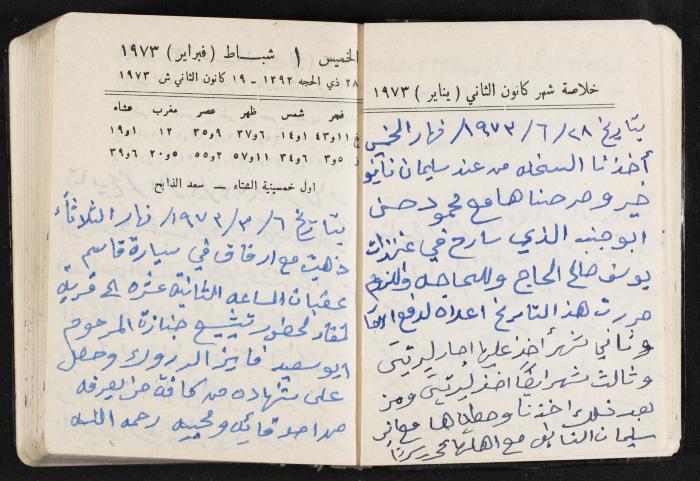 خلاصة شهر كانون الثاني ( يناير ) ١٩٧٣
بتاريخ ٢٨/ ٦ / ١٩٧٣/ نهار الخميس
أخذنا السخله من عند سليمان
خير و مع محمود حسن
ابو الذي سارح في
يوسف صالح الحاج وللحاجه وللزوم
حررت هذا التاريخ اعلاه لدفع
وثاني شهر أخذ عليها اجار ليرتين
وثالث شهر ايضاً اخذ ليرتين ومن
بعد ذلك اخذنا مع
سليمان مع اهلها
الخميس ١ شبـاط ( فبراير ) ١٩٧٣
٢٨ ذي الحجه ١٣٩٢ ـ ١٩ كانون الثاني ش ١٩٧٣
فجر شمس ظهر عصر مغرب عشاء
١١و٤٣ ١و١٤ ٦و٣٧ ٩و٣٥ ١٢ ١و١٩
٥و٣ ٦و٣٤ ١١و٥٧ ٢و٥٥ ٥و٢٠ ٦و٣٩
اول خمسينية الشتاء ـ سعد الذابح
بتاريخ ٦ / ٣ / ١٩٧٣/ نهار الثلاثاء
ذهبت مع ارفاق في سيارة قاسم
الساعه الثانية عشره الى قرية
لحضور تشييع جنازة المرحوم
ابو سعيد فايز وحصل
على شهاده من كافة من يعرفه
من اصدقائه ومحبيه رحمه الله